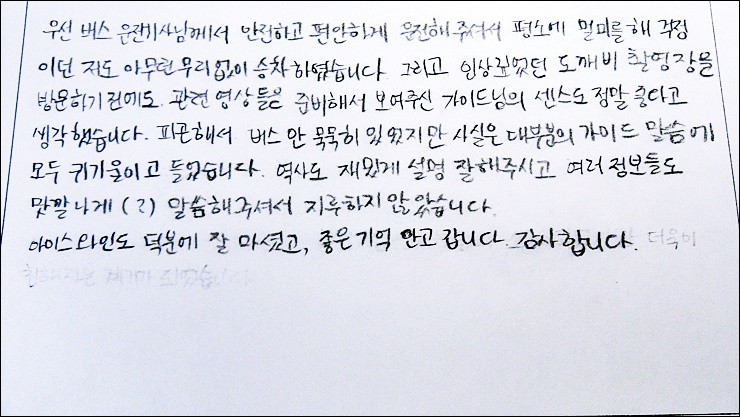 우선 버스 운전기사님께서 안전하고 편안하게 운전해주셔서 평소에 멀미를 해 걱정
이던 저도 아무런 무리없이 승차하였습니다. 그리고 인상깊었던 도깨비 촬영장을
방문하기 전에도 관련 영상들은 준비해서 보여주신 가이드님의 센스도 정말 좋다고
생각했습니다. 피곤해서 버스 안 묵묵히 있었지만 사실은 대부분의 가이드 말씀에
모두 귀기울이고 들었습니다. 역사도 재밌게 설명 잘해주시고 여러 정보들도
맛깔나게 (?) 말씀해주셔서 지루하지 않았습니다.
아이스와인도 덕분에 잘 마셨고, 좋은 기억 안고 갑니다. 감사합니다. 더욱이